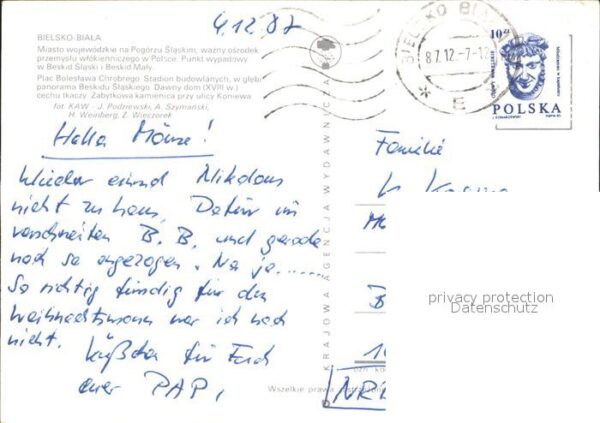 4.12.87
BIELSKO-BIAŁA
Miasto wojewódzkie na Pogórzu Śląskim, ważny ośrodek
przemysłu włókienniczego w Polsce. Punkt wypadowy
w Beskid Śląski i Beskid Mały.
Plac Bolesława Chrobrego. Stadion budowlanych, w głębi
panorama Beskidu Śląskiego. Dawny dom (XVIII w.)
cechu tkaczy. Zabytkowa kamienica przy ulicy Koniewa
fot. KAW - J. Podzniewski, A. Szymański,
H. Weinberg, Z. Wieczorek
Hallo Mönze!
Wieder einmal Nikolaus
nicht zu haus. Dafür im
verschneiten B. B. und gerade
noch so angezogen. Na ja......
So richtig fündig für den
Weihnachtsmann war ich noch
nicht. Küßchen für Euch
euer PAP,
KRAJOWA AGENCJA WYDAWNICZA
BIELSKO BIAŁA
87.12.-7-12
E
10 zł
POLSKA
Familie
K
privacy protection
Datenschutz
Wszelkie prawa
NRD